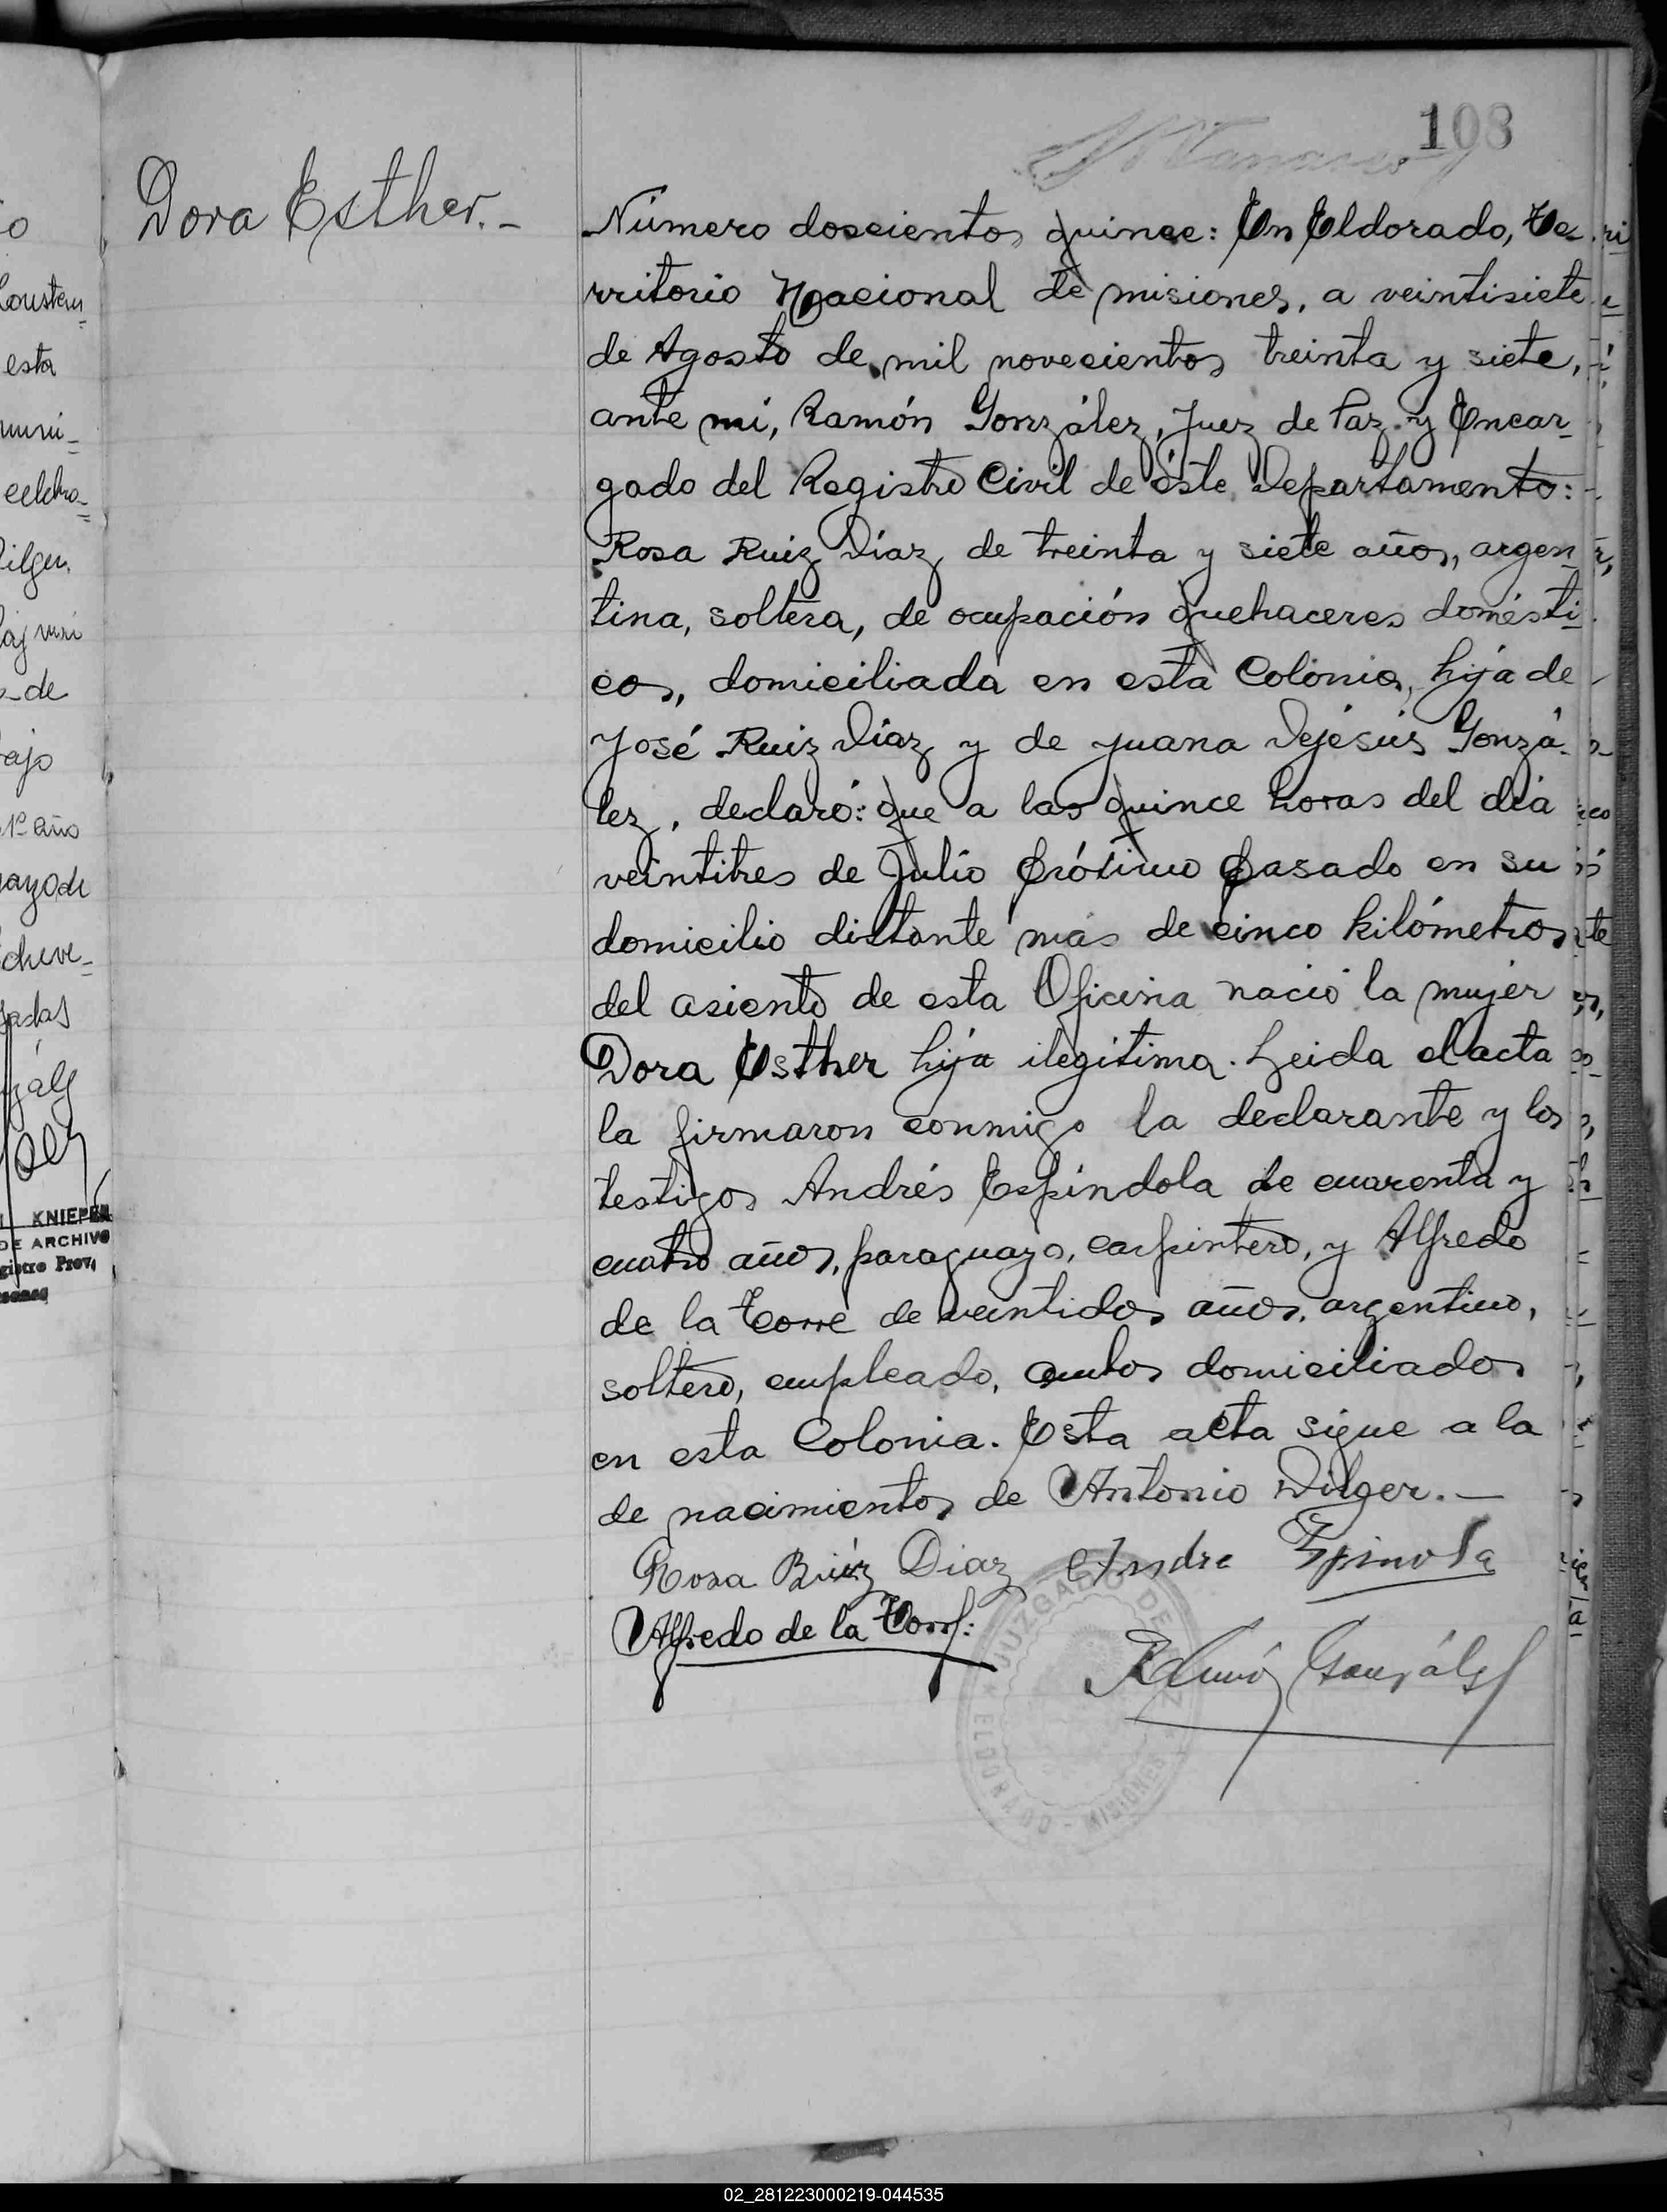 108
Dora Esther.-
Número doscientos quince: En Eldorado, Te-
rritorio Nacional de misiones, a veintisiete
de Agosto de mil novecientos treinta y siete,
ante mí, Ramón González, Juez de Paz y Encar-
gado del Registro Civil de éste Departamento:
Rosa Ruiz Díaz, de treinta y siete años, argen-
tina, soltera, de ocupación quehaceres domésti-
cos, domiciliada en esta Colonia, hija de
José Ruiz Díaz y de Juana Dejesús Gonzá-
lez, declaró: que a las quince horas del día
veintitres de Julio próximo pasado en su
domicilio distante más de cinco kilómetros
del asiento de esta Oficina nació la mujer
Dora Esther hija ilegítima. Leida el acta
la firmaron conmigo la declarante y los
testigos Andrés Espíndola de cuarenta y
cuatro años, paraguayo, carpintero, y Alfredo
de la Torre de veintidos años, argentino,
soltero, empleado, ambos domiciliados
en esta Colonia. Esta acta sigue a la
de nacimientos de Antonio Dilger.-
Rosa Ruíz Diaz Andre Espinola
Alfredo de la Torre:
Ramón González
JUZGADO DE
ELDORADO - MISIONES
esta
celebra-
Dilger.
de
1º año
KNIEPER
DE ARCHIVO
gistro Prov.
02_281223000219-044535